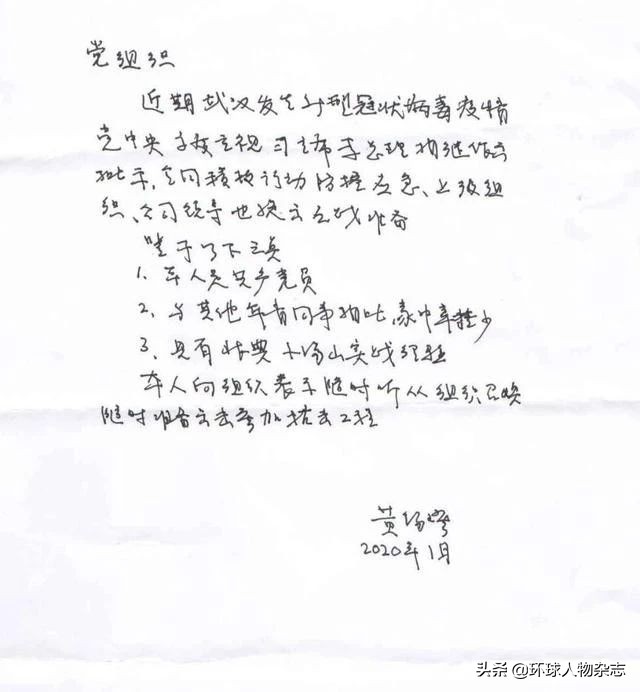 党组织
近期武汉发生新型冠状病毒疫情
党中央高度重视习主席李总理相继作出
批示,全国积极行动防控应急、上级组
织、公司领导也提出应战准备
鉴于以下三点
1. 本人是共产党员
2. 与其他年青同事相比,家中牵挂少
3. 具有非典小汤山实战经验
本人向组织表示随时听从组织召唤
随时准备出击参加抗击工程
黄锡璆
2020年1月
头条 @环球人物杂志